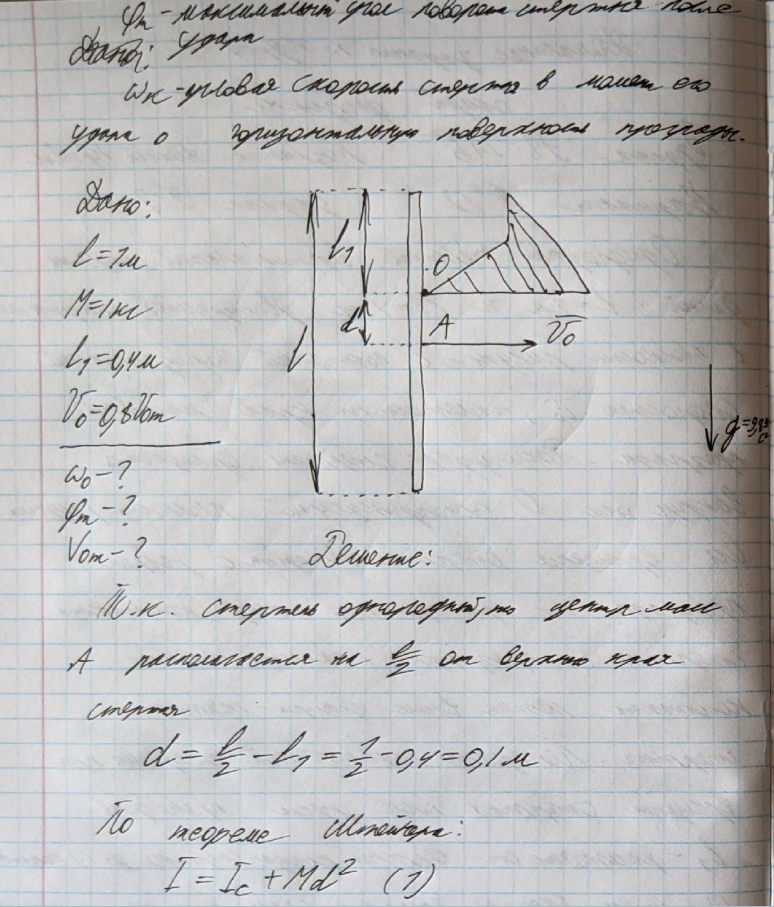 φm - максимальный угол поворота стержня после
Дано: удара
ωк - угловая скорость стержня в момент его
удара о горизонтальную поверхность преграды.
Дано:
l = 1м
M = 1кг
l₁ = 0,4м
V₀ = 0,8V₀m
ω₀ - ?
φm - ?
V₀m - ?
l
l₁
d
O
A
V̅₀
g =
Решение:
Т.к. стержень однородный, то центр масс
A располагается на l/2 от верхнего края
стержня
d = l/2 - l₁ = 1/2 - 0,4 = 0,1м
По теореме Штейнера:
I = Ic + Md² (1)